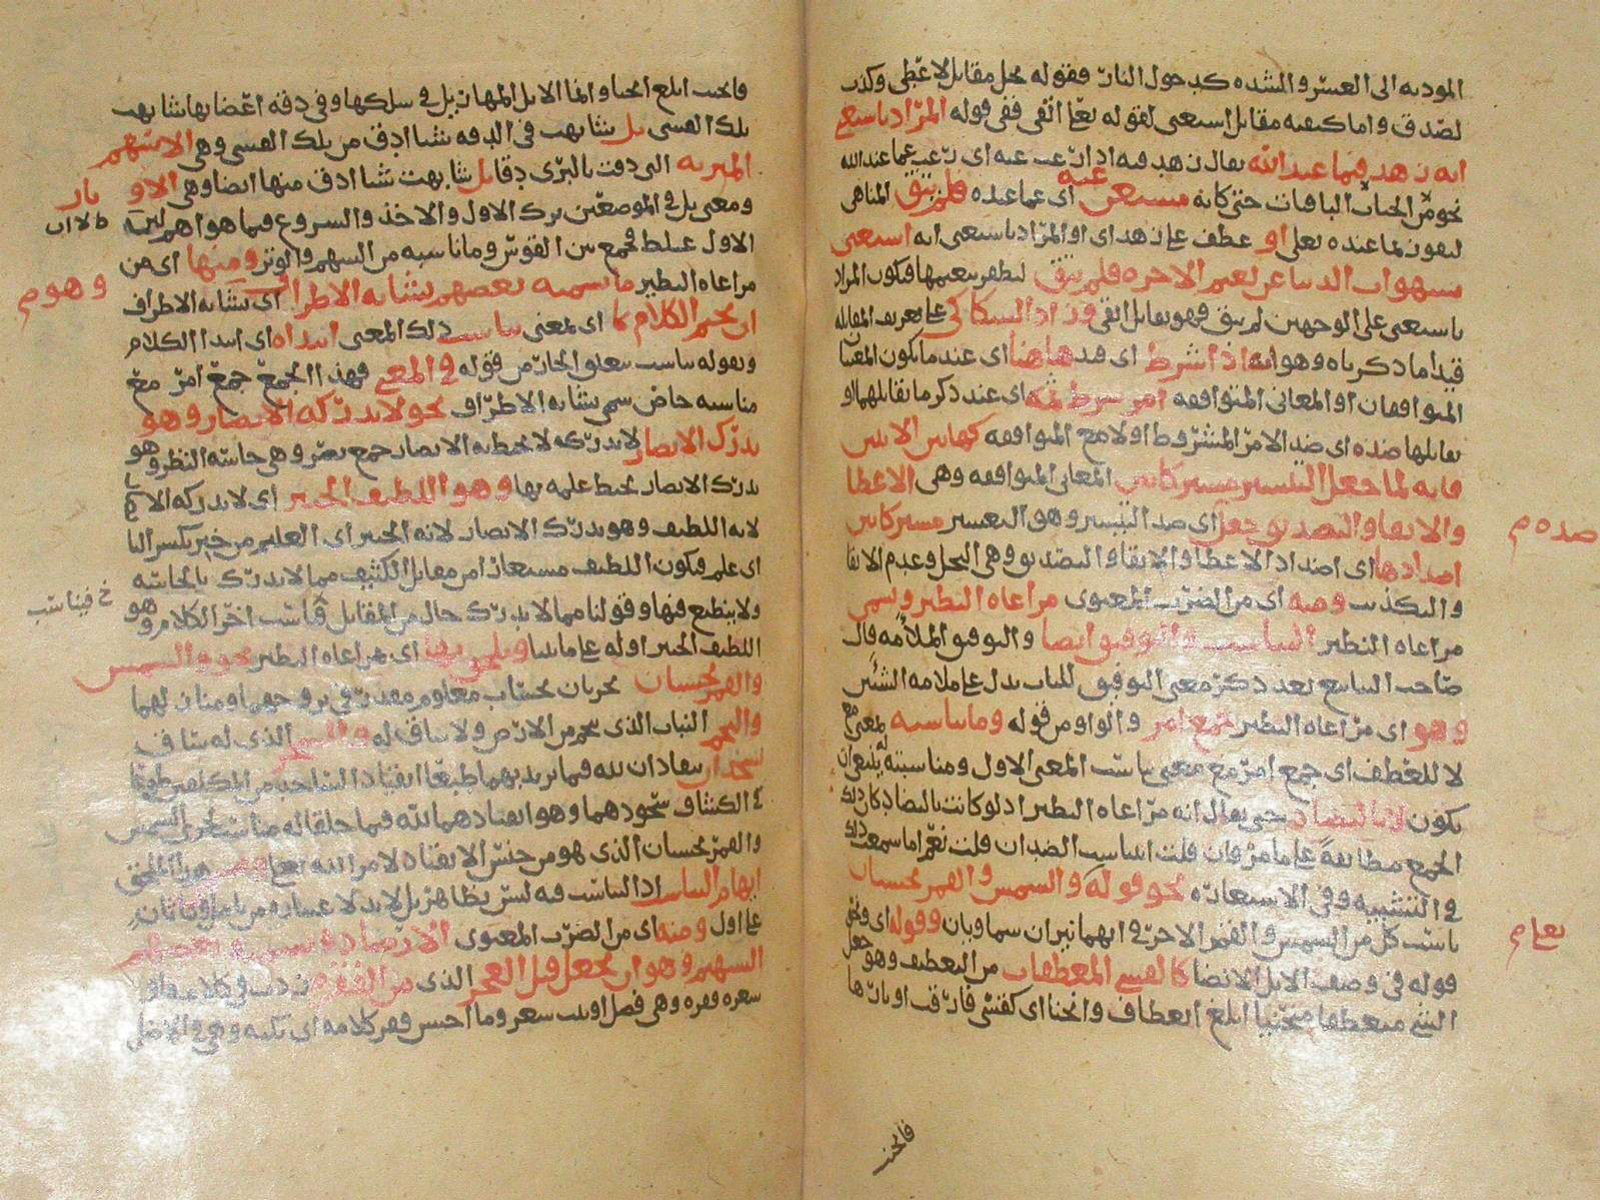 المودية الى العسر والشدة كدخول النار فقوله بخل مقابل لاعطى وكذب
لصدق واما كيفية مقابل استغنى لقوله تعالى اتقى ففي قوله المراد باستغنى
انه زهد فيما عند الله يقال زهد فيه اذا رغب عنه اي رغب عما عند الله
نحو من الجنات الباقيات حتى كانه مستغن عنه اي عما عنده فلم يتق المناهي
ليفوز بما عنده تعالى او عطف على زهد اي او المراد باستغنى انه استغنى
بشهوات الدنيا عن نعيم الاخرة فلم يتق ليظفر بنعيمها فيكون المراد
باستغنى على الوجهين لم يتق فهو يقابل اتقى وزاد السكاكي على تعريف المقابلة
قيدا ما ذكرناه وهو انه اذا شرط اي قد هاهنا اي عند ما يكون المعنيان
المتوافقان او المعاني المتوافقة امر شرط ثمه اي عند ذكر ما يقابلهما او
يقابلها ضده اي ضد الامر المشروط اولا مع المتوافقة كهاتين الايتين
فانه لما جعل التيسير مشتركا بين المعاني المتوافقة وهي الاعطا
والاتقا والتصديق جعل اي ضد التيسير وهو التعسير مشتركا بين
ضده م
اضدادها اي اضداد الاعطا والاتقا والتصديق وهي البخل وعدم الاتقا
والتكذيب ومنه اي من الضرب المعنوي مراعاة النظير وتسمى
مراعاة النظير التناسب والتوفيق ايضا والتوفيق الملائمة قال
صاحب الينابيع بعد ذكر معنى التوفيق للباب يدل على ملامة الشيئين
وهو اي مراعاة النظير جمع امر والواو من قوله وما يناسبه لمعنى مع
لا للعطف اي جمع امر مع معنى يناسب المعنى الاول ومناسبته له ينبغي ان
يكون لا بالتضاد حتى يقال انه مراعاة النظير اذ لو كانت بالتضاد كان ذلك
الجمع مطابقة على ما مر فان قلت ايناسب الضدان قلت نعم اما سمعت ذلك
في التشبيه وفي الاستعارة نحو قوله والشمس والقمر بحسبان
يناسب كل من الشمس والقمر الاخر في انهما نيران سماويان وقوله اي ونحو
تعالى م
قوله في وصف الابل الانضا كالقسي المعطفات من التعطيف وهو جعل
الشئ منعطفا منحنيا ابلغ انعطاف وانحنا اي كقسي فارقت اوتارها
فانحنت
فانحنت ابلغ انحنا وانما الابل المهازيل في سلكها وفي دقة اعضائها شابهت
تلك القسي بل شابهت في الدقة شيئا ادق من تلك القسي وهي الاسهم
المبرية التي دقت بالبري دقا بل شابهت شيئا ادق منها ايضا وهي الاوتار
ومعنى بل في الموضعين ترك الاول والاخذ والشروع فيما هو اهم ليس
الاول غلط فجمع بين القوس وما ناسبه من السهم والوتر ومنها اي من
مراعاة النظير ما يسميه بعضهم تشابه الاطراف اي تشابه الاطراف
وهو م
ان يختم الكلام بما اي بمعنى يناسب ذلك المعنى ابتداه اي ابتدا الكلام
وبقوله يناسب يتعلق الجار من قوله في المعنى فهذا الجمع جمع امر مع
مناسبه خاص سمي بتشابه الاطراف نحو لا تدركه الابصار وهو
يدرك الابصار لا تدركه لا تحيط به الابصار جمع بصر وهي حاسة النظر وهو
يدرك الابصار يحيط علمه بها وهو اللطيف الخبير اي لا تدركه الا
لانه اللطيف وهو يدرك الابصار لانه الخبير اي العليم من خبر بكسر البا
اي علم فيكون اللطيف مستعار من مقابل الكثيف مما لا يدرك بالحاسة
ولا ينطبع فيها وقولنا مما لا يدرك حال من المقابل فناسب اخر الكلام وهو
خ فيناسب
اللطيف الخبير اوله على ما بينا ويلحق بها اي مراعاة النظير نحو والشمس
والقمر بحسبان يجريان بحساب معلوم مقدر في بروجهما ومنازلهما
والنجم النبات الذي ينجم من الارض ولا ساق له والشجر الذي له ساق
يسجدان ينقادان لله فيما يريد بهما طبعا انقياد الساجد من المكلفين طوعا
في الكشاف سجودهما وهو انقيادهما لله فيما خلقا له مناسب لجري الشمس
والقمر بحسبان الذي هو من جنس الانقياد لامر الله تعالى هذا الملحق
ايهام التناسب اذ التناسب فيه ليس بظاهر بل لابد لاعتباره من
على اول ومنه اي من الضرب المعنوي الارصاد ويسميه بعضهم
التسهيم وهو ان يجعل قبل العجز الذي من الفقرة
شعره فقرة وهي فصل او بيت شعر وما احسن فقر كلامه اي نكته وهي في الاصل